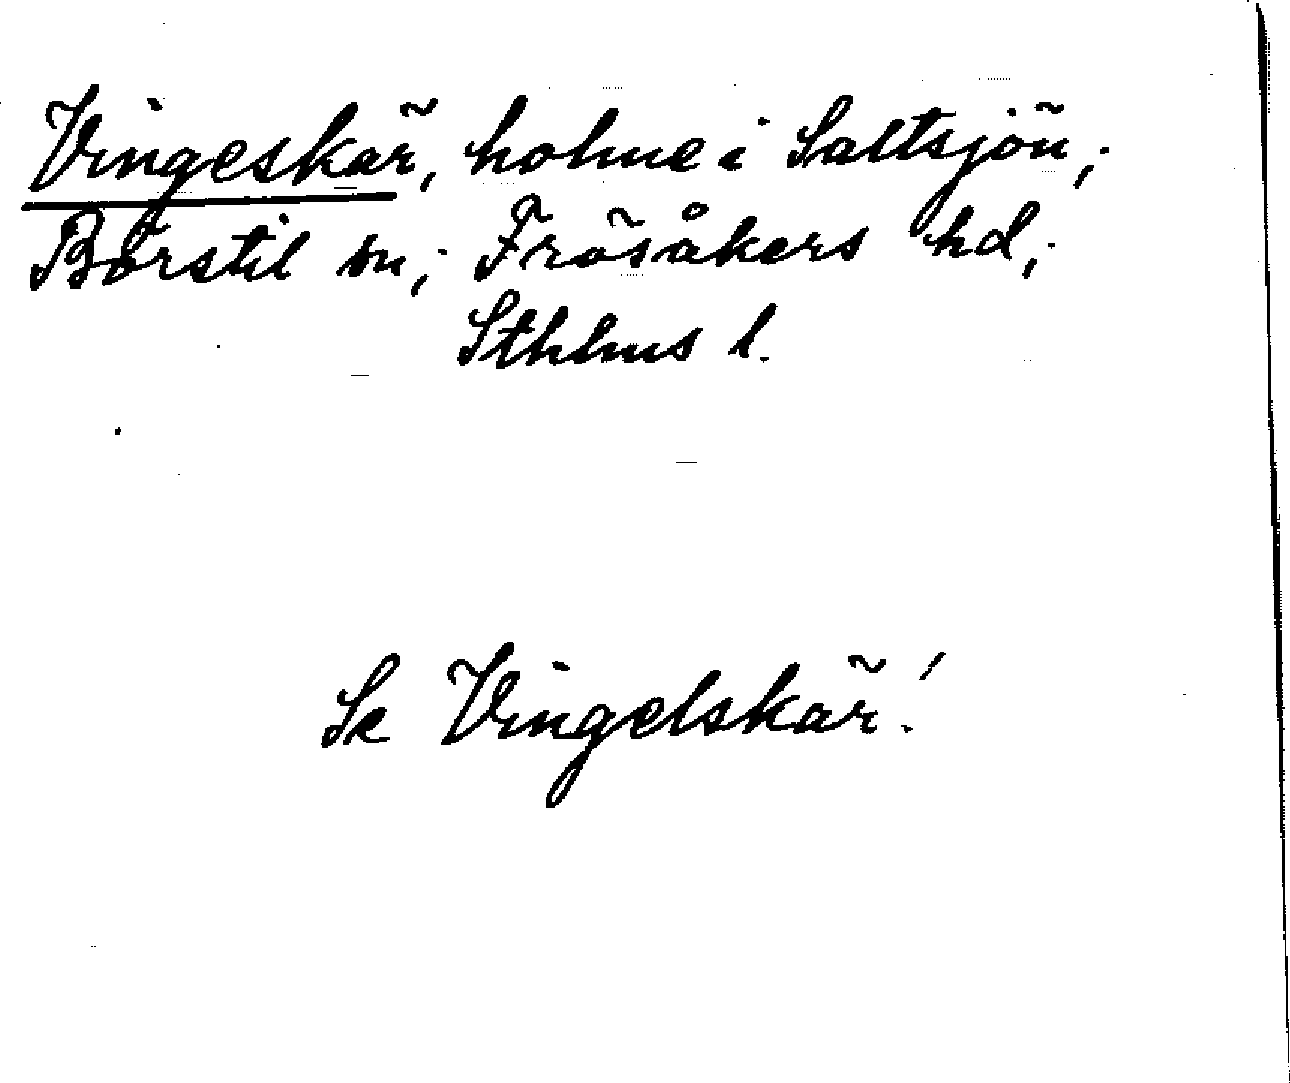 Vingeskär, holme i Saltsjön,;
Börstil sn,; Frösåkers hd,;
Sthlms l.
Se Vingelskär!